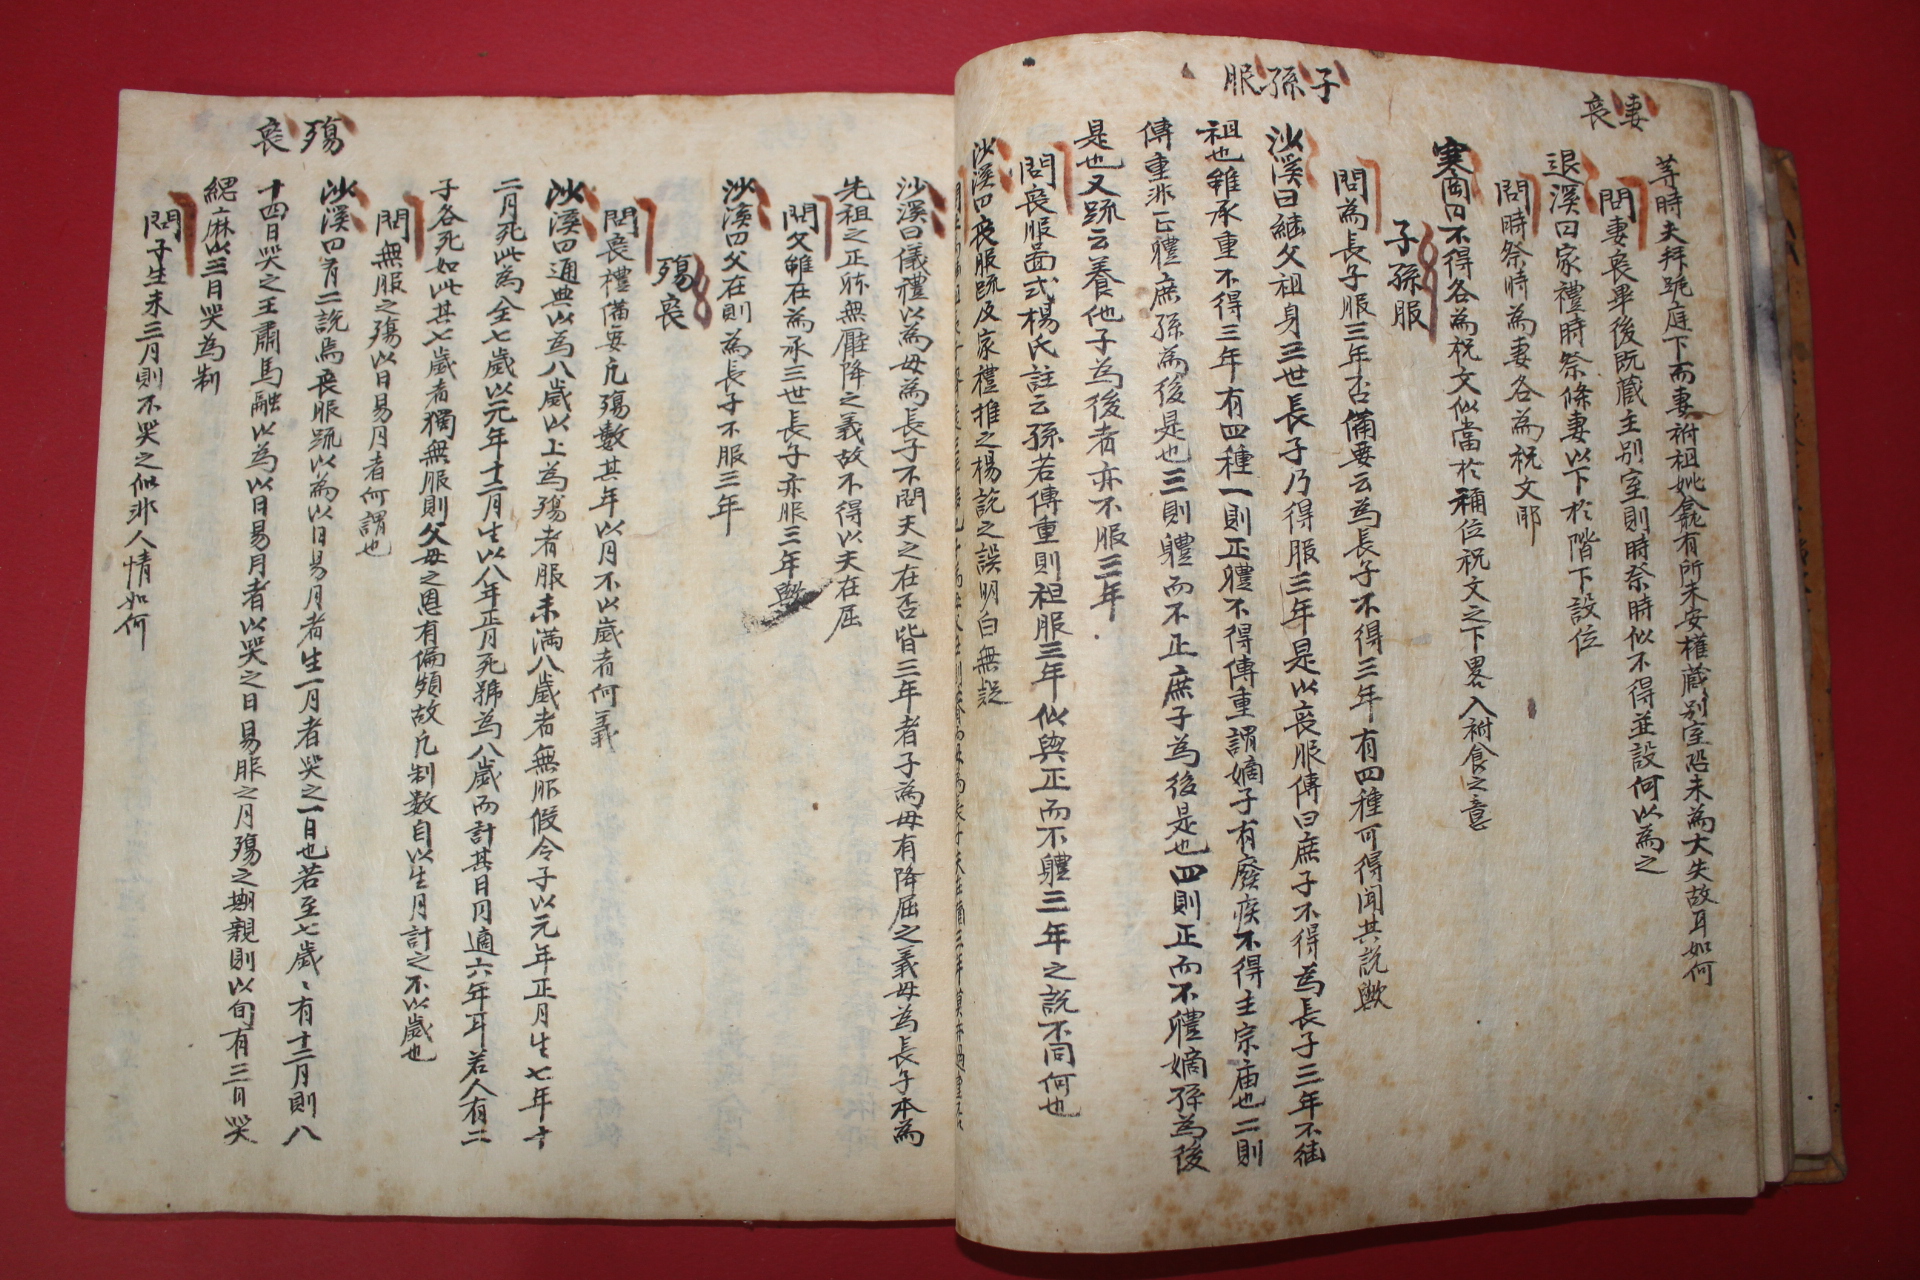 妻喪
子孫服
等時夫拜跪庭下而妻祔祖妣龕有所未安權蔵别室恐未為大失故耳如何
問妻喪畢後既蔵主别室則時祭時似不得並設何以為之
退溪曰家禮時祭條妻以下於階下設位
問時祭時為妻各為祝文耶
寒岡曰不得各為祝文似當於禰位祝文之下畧入祔食之意
子孫服
問為長子服三年否備要云為長子不得三年有四種可得聞其説歟
沙溪曰継父祖身三世長子乃得服三年是以喪服傳曰庶子不得為長子三年不継
祖也雖承重不得三年有四種一則正軆不得傳重謂嫡子有廢疾不得主宗庙也二則
傳重非正軆庶孫為後是也三則軆而不正庶子為後是也四則正而不軆嫡孫為後
是也又疏云養他子為後者亦不服三年
問喪服啚式楊氏註云孫若傳重則祖服三年似與正而不軆三年之説不同何也
沙溪曰喪服疏及家禮推之楊説之誤明白無疑
沙溪曰儀禮以為母為長子不問夫之在否皆三年者子為母有降屈之義母為長子本為
先祖之正軆無厭降之義故不得以夫在屈
問父雖在為承三世長子亦服三年歟
沙溪曰父在則為長子不服三年
殤喪
殤喪
問喪禮備要凡殤數其年以月不以歲者何義
沙溪曰通典以為八歲以上為殤者服未満八歲者無服假令子以元年正月生七年十
二月死此為全七歲以元年十二月生以八年正月死號為八歲而計其日月適六年耳若人有二
子各死如此其七歲者獨無服則父母之恩有偏頗故凡制数自以生月計之不以歲也
問無服之殤以日易月者何謂也
沙溪曰有二説焉喪服疏以為以日易月者生一月者哭之一日也若至七歲〻有十二月則八
十四日哭之王肅馬融以為以日易月者以哭之日易服之月殤之期親則以旬有三日哭
緦麻以三日哭為制
問子生未三月則不哭之似非人情如何